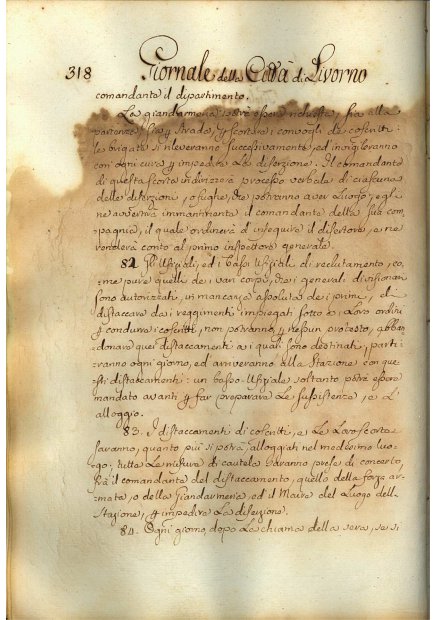 318 Giornale della Città di Livorno
comandante il dipartimento.
La giandarmeria potrà esser richiesta, sia alla
partenza, sia p strada, p scortare i convogli de coscritti:
le brigate si rileveranno successivamente, ed invigileranno
con ogni cura p impedire la diserzione. Il comandante
di questa scorta indirizzerà processo verbale di ciascuna
delle diserzioni, o fughe, che potranno aver luogo, egli
ne avvertirà immantinente il comandante della sua com
pagnia, il quale ordinerà d'inseguire il disertore, e ne
renderà conto al primo inspettore generale.
82. Gl'Uffiziali, ed i bassi Uffiziali di reclutamento, co,
me pure quelli dei vari corpi, che i generali divisionari
sono autorizzati, in mancanza assoluta dei primi, di
distaccare dai reggimenti impiegati sotto i loro ordini
p condurre i coscritti, non potranno, p nessun pretesto, abban
donare quei distaccamenti ai quali sono destinati, parti,
ranno ogni giorno, ed arriveranno alla Stazione con que
sti distaccamenti: un basso-Uffiziale soltanto potrà essere
mandato avanti p far preparare le sussistenze, e l'
alloggio.
83. I distaccamenti di coscritti, e le loro scorte
saranno, quanto più si potrà, alloggiati nel medesimo luo-
go; tutte le misure di cautela saranno prese di concerto,
frà il comandante del distaccamento, quello della forza ar-
mata, o della Giandarmeria, ed il Maire del Luogo della
Stazione, p impedire la diserzione.
84. Ogni giorno, dopo la chiama della sera, se si